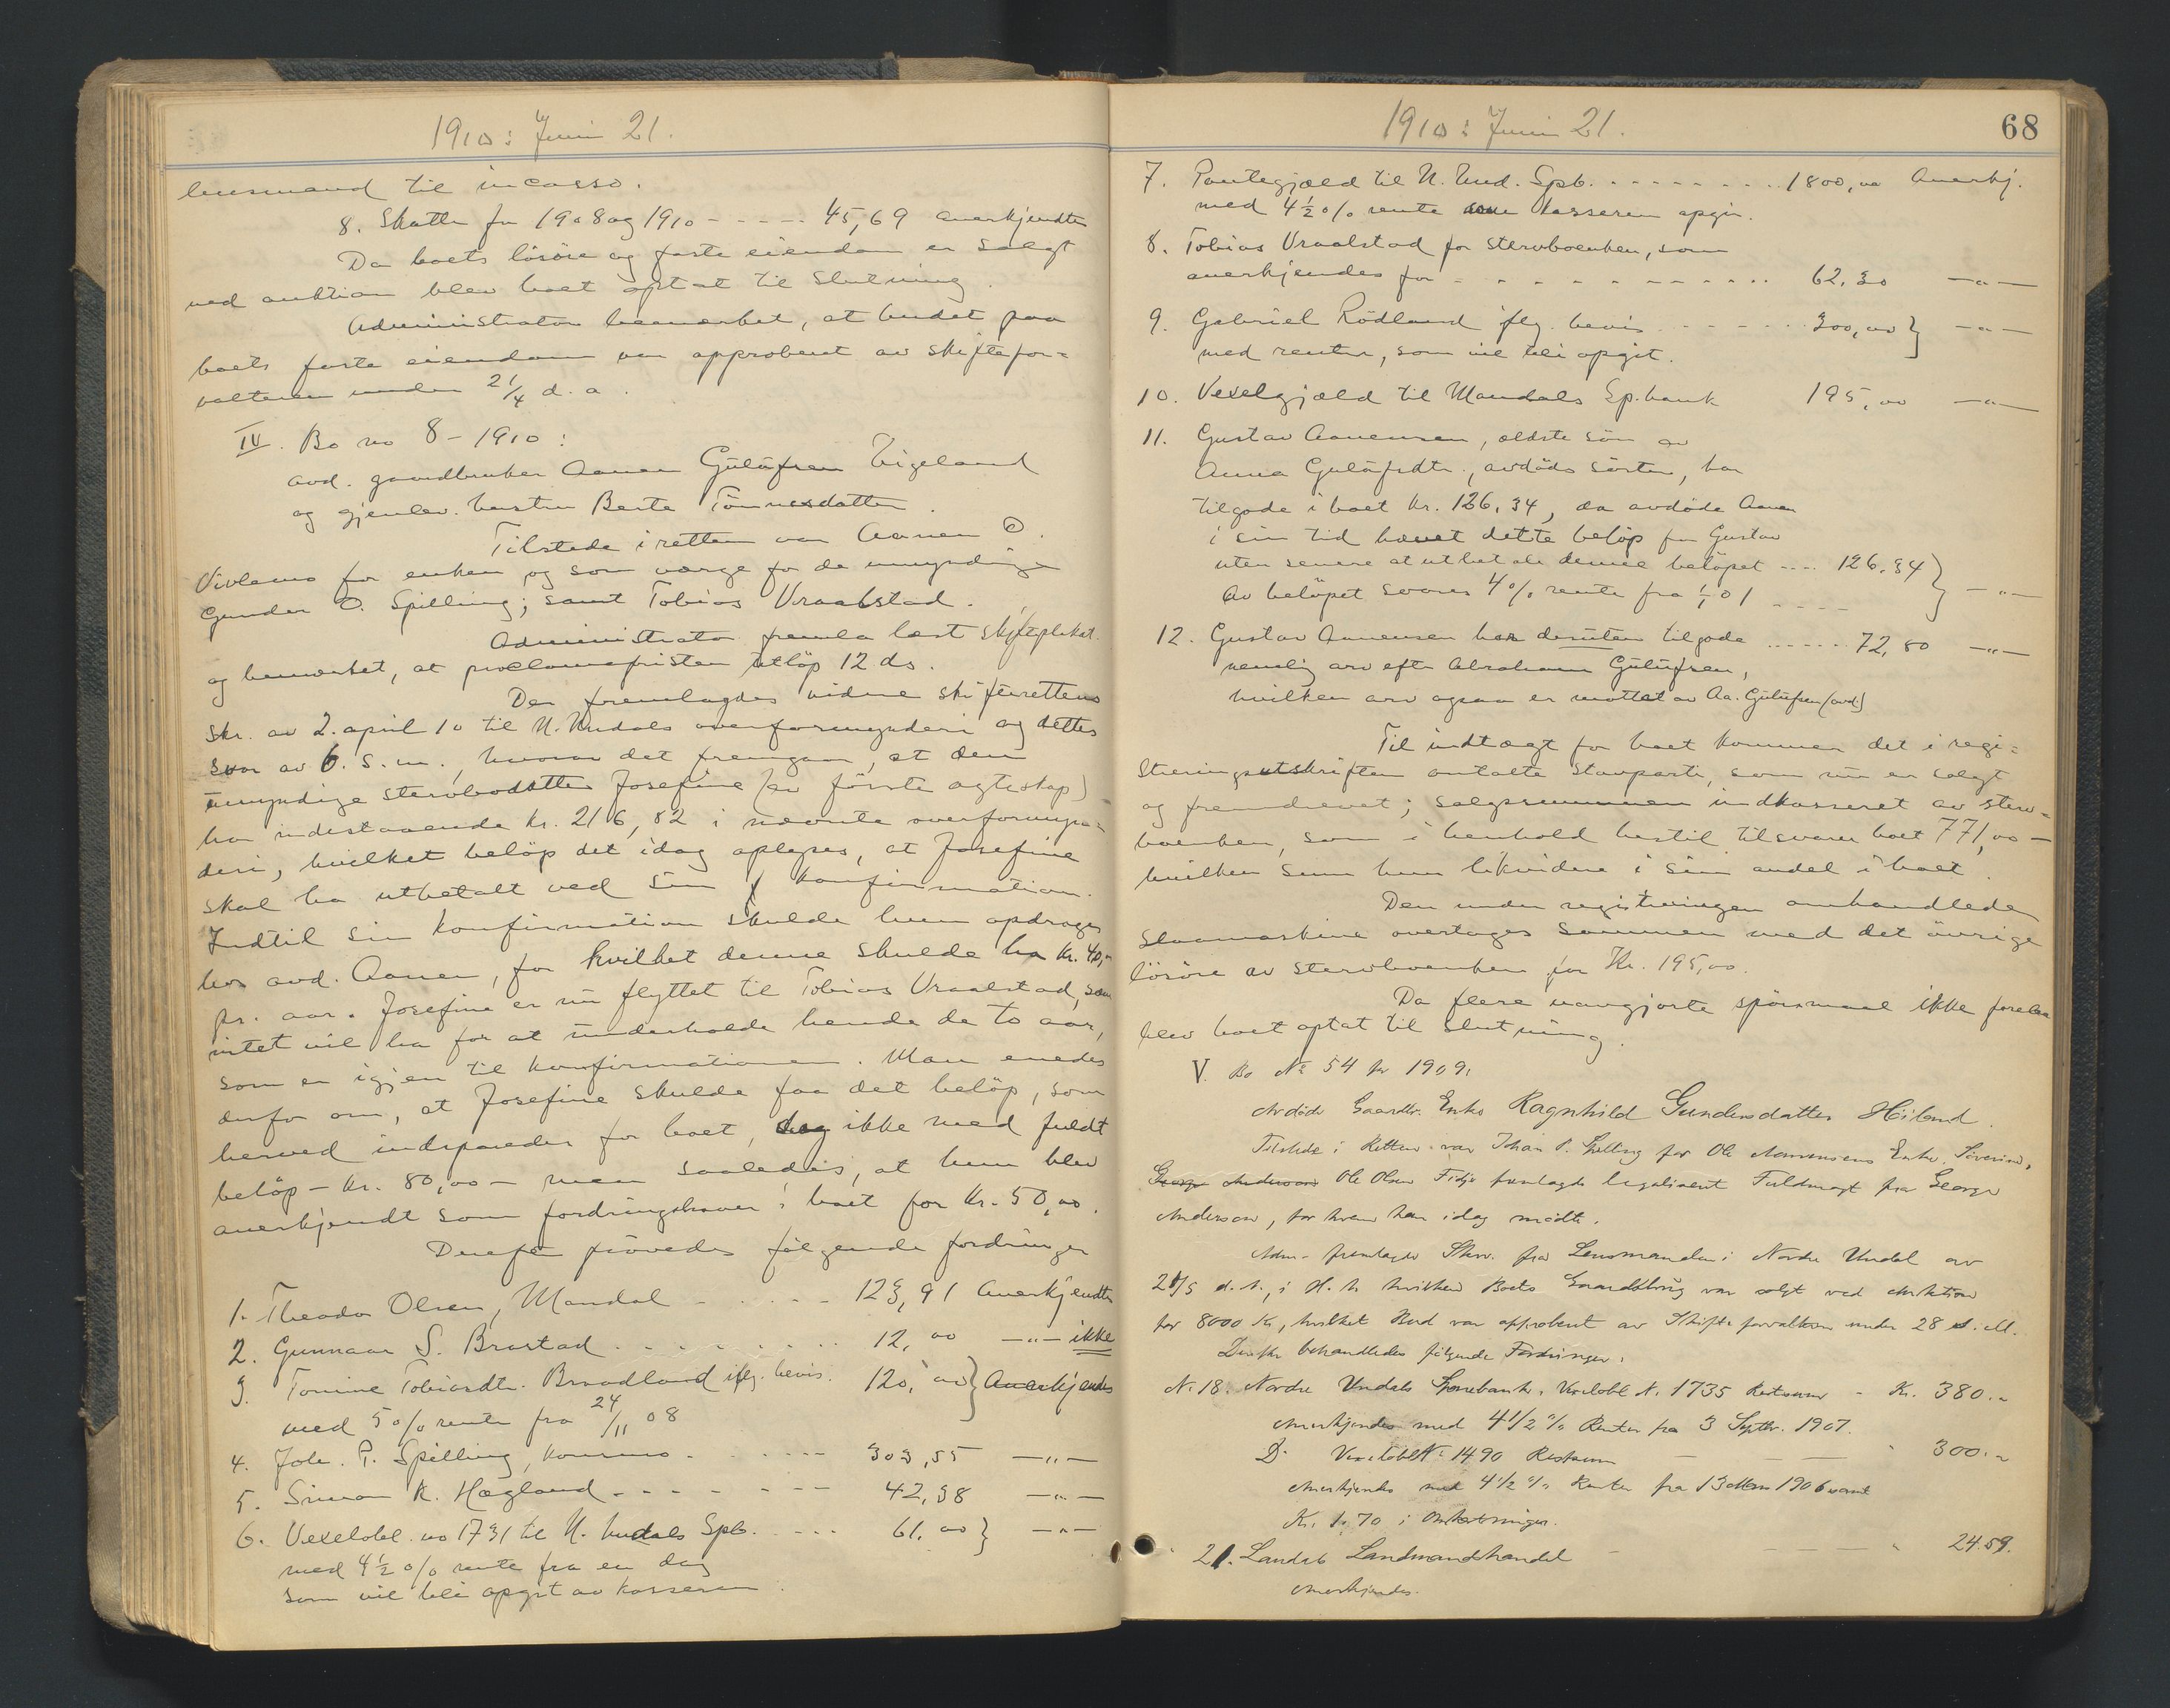 1910: Juni 21.
lensmand til incasso.
8. Skatte for 1908 og 1910 - - - - - 45,69 anerkjendtes
Da boets lösöre og faste eiendom er solgt
ved auktion blev boet optat til slutning.
Administrator bemerket, at budet paa
boets faste eiendom var approberet av skiftefor=
valteren under 21/4 d. a.
IV. Bo no 8 - 1910:
avd. gaardbruker Aanen Gulufsen Vigeland
og gjenlev. hustru Berte Tönnesdatter.
Tilstede i retten var Aanen O.
Vivlemo for enken og som verge for de umyndige
Gunder O. Spilling; samt Tobias Vraalstad.
Administrator fremla læst skifteplakat
og bemerket, at proclamafristen utløp 12 ds.
Der fremlagdes videre skifterettens
skr. av 2. april 10 til N. Undals overformynderi og dettes
svar av 6. s. m., hvorav det fremgaar, at den
umyndige stervbodatter Josefine (av förste egteskap)
har indestaaende kr. 216,82 i nævnte overformyn=
deri, hvilket belöp det idag oplyses, at Josefine
skal ha utbetalt ved sin konfirmation.
Indtil sin konfirmation skulde hun opdrages
hos avd. Aanen, for hvilket denne skulde ha kr. 40,00
pr. aar. Josefine er nu flyttet til Tobias Vraalstad, som
intet vil ha for at underholde hende de to aar,
som er igjen til konfirmationen. Man enedes
derfor om, at Josefine skulde faa det belöp, som
herved indsparedes for boet, dog ikke med fuldt
belöp - kr. 80,00 - men saaledes, at hun blev
anerkjendt som fordringshaver i boet for kr. 50,00.
Derefter prövedes fölgende fordringer
1. Theodor Olsen, Mandal - - - - 123,91 Anerkjendtes
2. Gunnar S. Brastad . . . . . . 12,00 -"- ikke
3. Tomine Tobiasdtr. Braadland iflg. bevis. 120,00 } Anerkjendes
med 5% rente fra 24/11 08
4. Joh. P. Spilling, - - - - 303,55 -"-
5. Simon K. Hægland - - - - - - 42,38 -"-
6. Vexelobl. no 1731 til N. Undals Spb. - - - 61,00 } -"-
med 4½% rente fra en dag
som vil bli opgit av kasseren.
1910: Juni 21.
68
7. Pantegjæld til N. Und. Spb. - - - - - - - 1800,00 Anerkj.
med 4½% rente som kasseren opgir.
8. Tobias Vraalstad for stervboenken, som
anerkjendes for - - - - - - - - - 62,30 -"-
9. Gabriel Rödland iflg. bevis - - - - - 300,00 } -"-
med renter, som vil bli opgit.
10. Vexelgjæld til Mandals Sp.bank 195,00 -"-
11. Gustav Aanensen, ældste sön av
Anna Gulufsdtr., avdödes söster, har
tilgode i boet kr. 126,34, da avdöde Aanen
i sin tid hævet dette belöp for Gustav
uten senere at utbetale denne belöpet .... 126,34 }
Av belöpet svares 4% rente fra 1/1 01 - - - - -"-
12. Gustav Aanensen har desuten tilgode ...... 72,80 -"-
nemlig arv efter Abraham Gulufsen,
hvilken arv ogsaa er mottat av Aa. Gulufsen (avd.)
Til indtægt for boet kommer det i regi=
streringsutskriften omtalte stavparti, som nu er solgt
og fremdrevet; salgssummen indkasseret av sterv=
boenken, som i henhold hertil tilsvarer boet 771,00 -
hvilken sum hun likviderer i sin andel i boet.
Den under registreringen omhandlede
slaamaskine overtages sammen med det övrige
lösöre av stervboenken for Kr. 195,00.
Da flere uavgjorte spörsmaal ikke forelaa
blev boet optat til slutning.
V. Bo No 54 for 1909.
Avdöde Gaardbr. Enke Ragnhild Gundersdatter Höiland.
Tilstede i Retten var Johan P. Spilling for Ole Aanensens Enke, Severine,
George Anderson Ole Olsen Fidje fremlagde legaliseret Fuldmagt fra George
Anderson, for hvem han idag mödte.
Adm. fremlagde Skr. fra Lensmanden i Nordre Undal av
21/5 d. A., i H. t. hvilken Boets Gaardsbrug var solgt ved Auktion
for 8000 Kr., hvilket Bud var approberet av Skifteforvalteren under 28 s. M.
Derefter behandledes fölgende Fordringer:
N. 18. Nordre Undals Sparebank, Vexelobl. N. 1735 Restsum - Kr. 380.-
Anerkjendes med 4 1/2 % Renter fra 3 Septbr. 1907.
D. Vexelobl. N. 1490 Restsum - - - " 300.-
Anerkjendes med 4 1/2 % Renter fra 13 Mars 1906 samt
Kr. 1.70 i Omkostninger.
" 21. Landsb Landmandshandel - - - - " 24.59.
Anerkjendes.